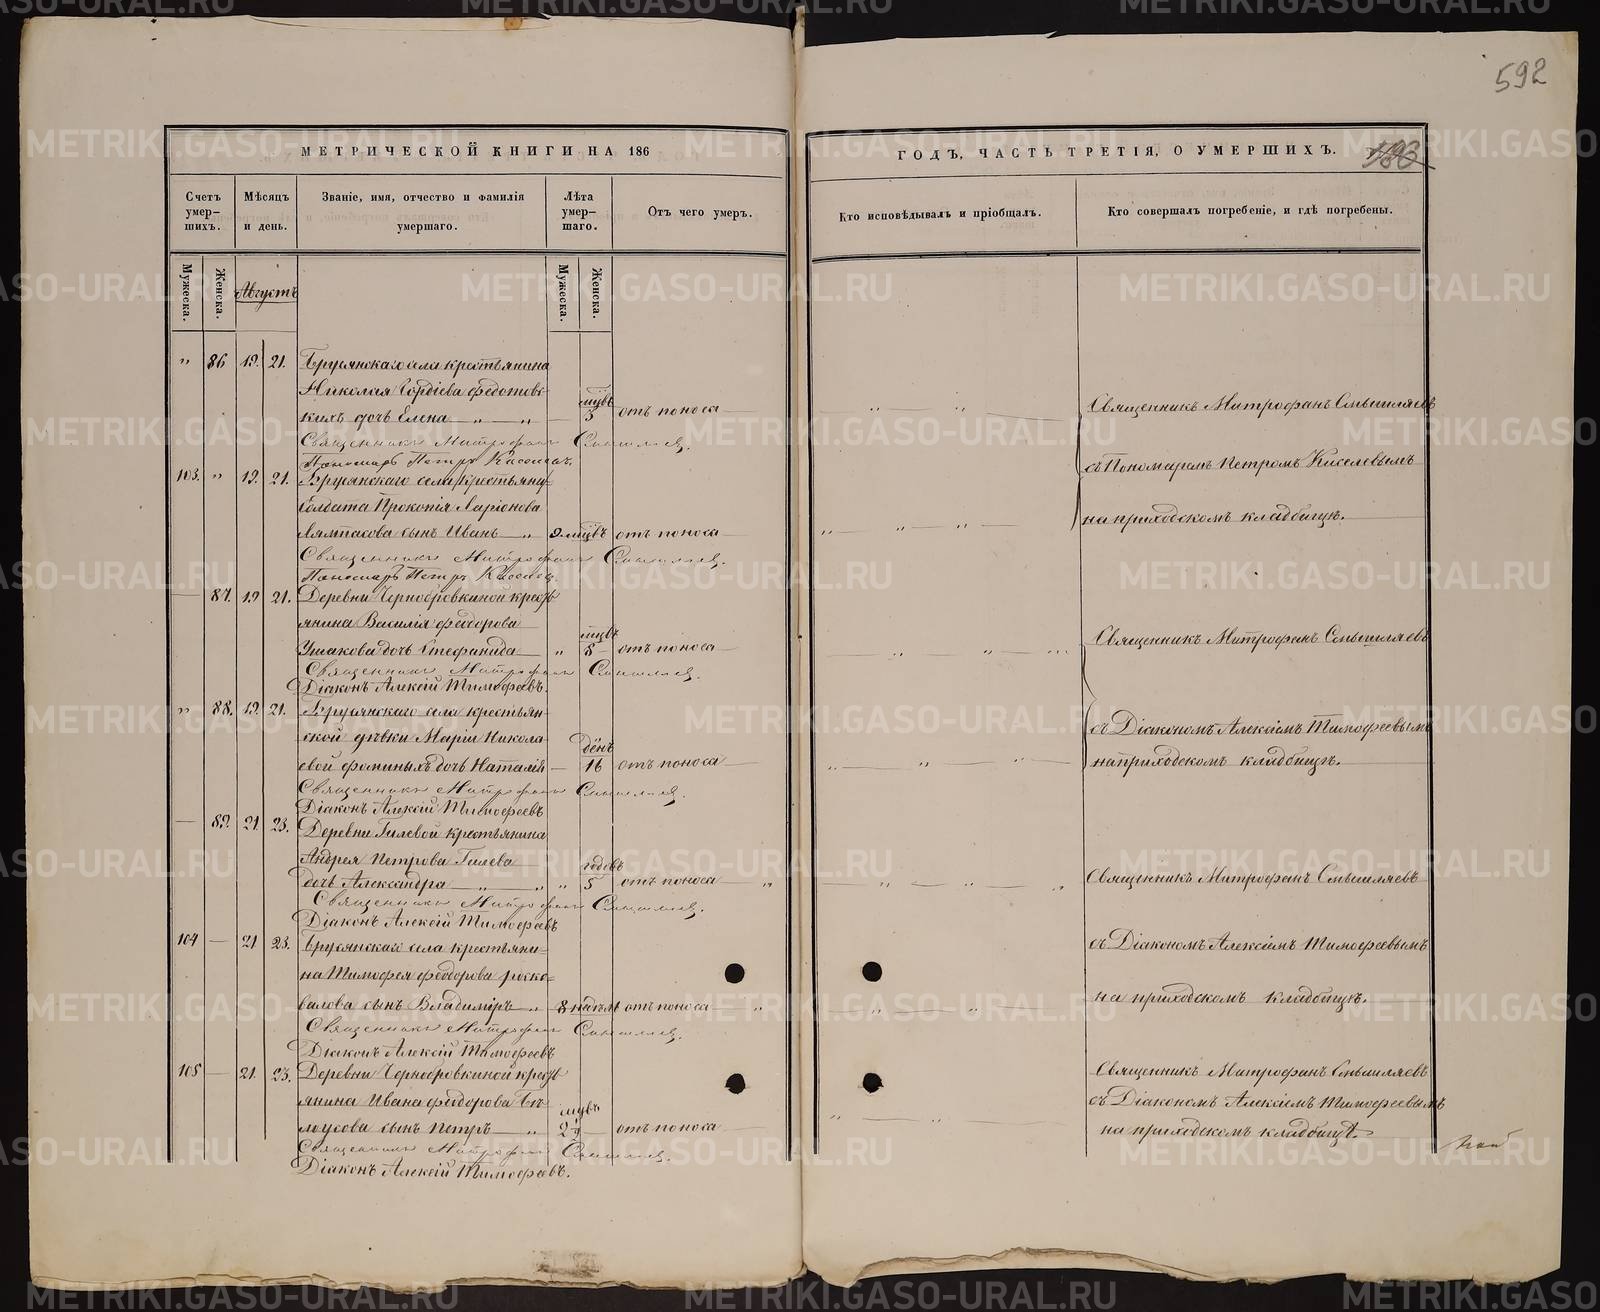 592
МЕТРИЧЕСКОЙ КНИГИ НА 186
ГОДЪ, ЧАСТЬ ТРЕТІЯ, О УМЕРШИХЪ.
Счетъ умер-шихъ.
Мѣсяцъ и день.
Званіе, имя, отчество и фамилія умершаго.
Лѣта умер-шаго.
Отъ чего умеръ.
Кто исповѣдывалъ и пріобщалъ.
Кто совершалъ погребеніе, и гдѣ погребены.
Мужеска.
Женска.
Августъ
Мужеска.
Женска.
" 86 19. 21. Бруянскаго села крестьянина
Николая Гордіева Федотовс-
кихъ дочь Елена мцвъ 3 отъ поноса
Священникъ Митрофанъ Смышляевъ
Священникъ Митрофанъ Смышляев.
Пономарь Петръ Киселевъ.
съ Пономаремъ Петромъ Киселевымъ
103. " 19. 21. Бруянскаго села крестьяну
Солдата Прокопія Ларіонова
на приходскомъ кладбищѣ.
Лямпасова сынъ Иванъ 9 мцвъ отъ поноса
Священникъ Митрофанъ Смышляев.
Пономарь Петръ Киселев.
87. 19 21. Деревни Чернобровкиной кресть
янина Василія Феодорова
Ушакова дочь Стефанида " мцвъ 8 отъ поноса
Священникъ Митрофанъ Смышляевъ
Священникъ Митрофанъ Смышляев.
Діаконъ Алексій Тимофеевъ.
" 88. 19. 21. Бруянскаго села крестьян-
ской дѣвки Маріи Никола
съ Діакономъ Алексіемъ Тимофеевымъ
евой Фоминыхъ дочь Наталія день 16 отъ поноса
на приходскомъ кладбищѣ.
Священникъ Митрофанъ Смышляев.
Діаконъ Алексій Тимофеевъ
89. 21. 23. Деревни Гилевой крестьянина
Андрея Петрова Гилева
дочь Александра " годовъ 5 отъ поноса
Священникъ Митрофанъ Смышляевъ
Священникъ Митрофанъ Смышляев.
Діаконъ Алексій Тимофеевъ
104 21 23. Бруянскаго села крестьяни-
на Тимофея Феодорова Роско-
съ Діакономъ Алексіемъ Тимофеевымъ
валова сынъ Владиміръ 8 недѣль отъ поноса
на приходскомъ кладбищѣ.
Священникъ Митрофанъ Смышляев.
Діаконъ Алексій Тимофеевъ
105 21. 23. Деревни Чернобровкиной кресть
Священникъ Митрофанъ Смышляевъ
янина Ивана Феодорова Бѣ-
съ Діакономъ Алексіемъ Тимофеевымъ
лоусова сынъ Петръ мцвъ отъ поноса
на приходскомъ кладбищѣ.
Священникъ Митрофанъ Смышляев.
Діаконъ Алексій Тимофеевъ.
METRIKI.GASO-URAL.RU